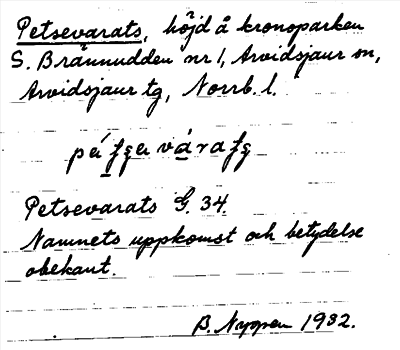 Petsevarats, höjd å kronoparken
S. Brännudden nr 1, Arvidsjaur sn,
Arvidsjaur tg, Norrb. l.
Petsevarats G. 34.
Namnets uppkomst och betydelse
obekant.
B. Nygren 1932.